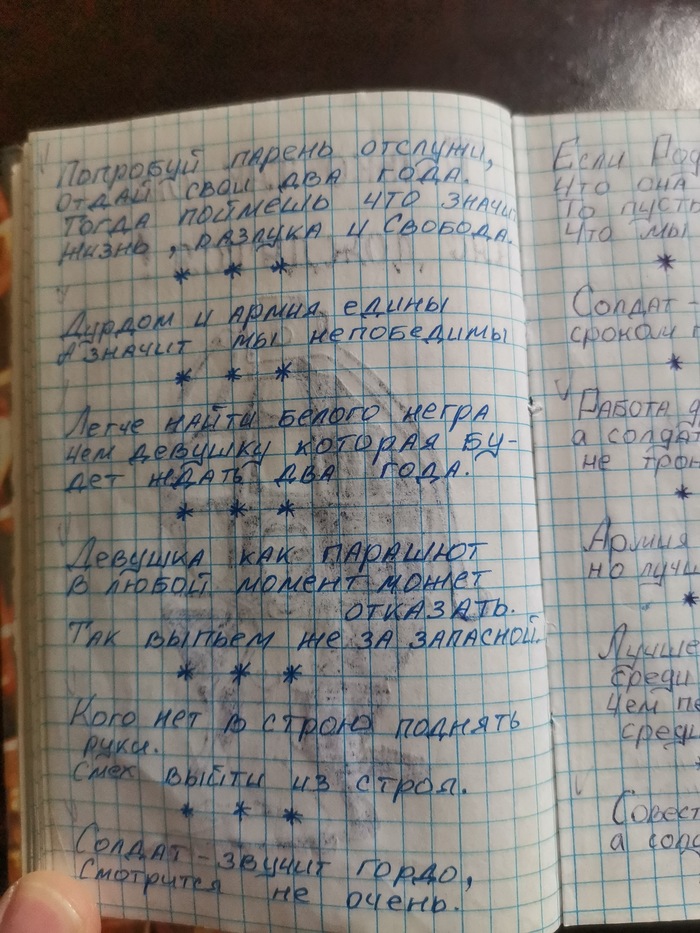 Попробуй парень отслужи,
отдай свои два года.
Тогда поймешь что значи
жизнь, разлука и свобода.
* * *
Дурдом и армия едины
А значит мы непобедимы
* * *
Легче найти белого негра
чем девушку которая бу-
дет ждать два года.
* * *
Девушка как парашют
в любой момент может
отказать.
Так выпьем же за запасной.
* * *
Кого нет в строю поднять
руки.
Смех выйти из строя.
* * *
Солдат - звучит гордо,
Смотрится не очень.
Если Род
что она
То пусть
что мы
*
Солдат -
сроком
*
Работа
а солда
не трон
*
Армия
но лучш
*
Лучше
среди
чем пе
среди
*
Совест
а солд